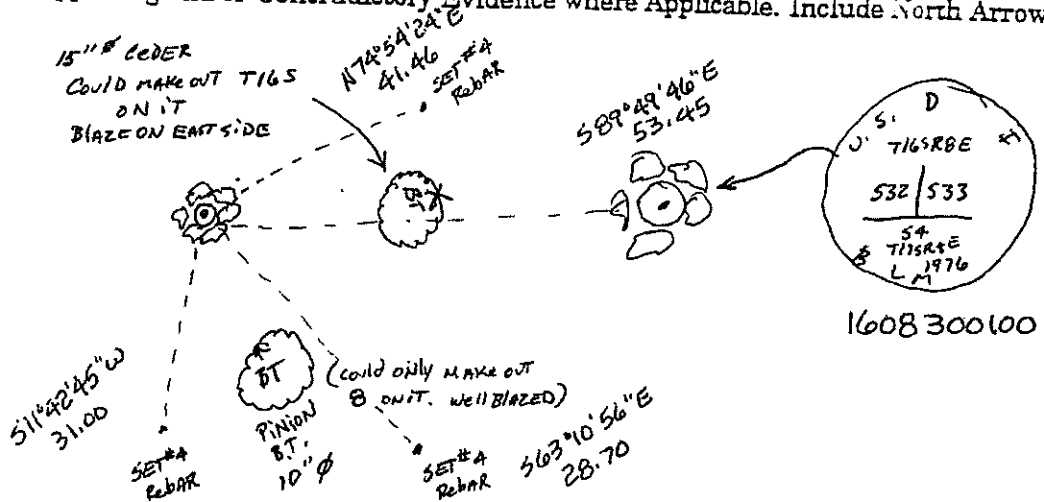 Contradictory Evidence where Applicable. Include North Arrow
15" ø CEDER
COULD MAKE OUT T16S
ON IT
BLAZE ON EAST SIDE
N74°54'24"E
41.46
SET #4
RebAR
S89°49'46"E
53.45
BT
U. S. D I
T16SR8E
S32 | S33
S4
T17SR8E
B L M 1976
1608300100
S11°42'45"W
31.00
SET #4
RebAR
BT
PINION
B.T.
10" ø
(could only MAKE OUT
8 ON IT. Well BLAZED)
SET #4
RebAR
S63°10'56"E
28.70